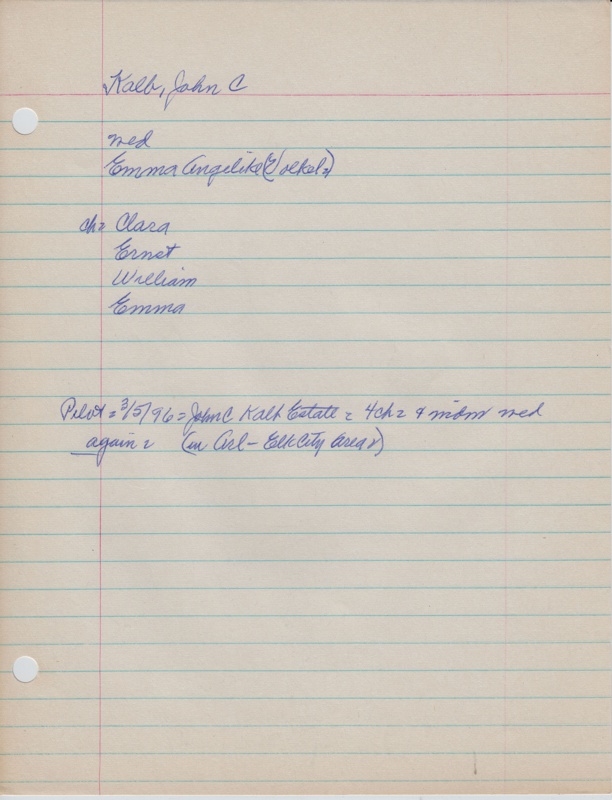 Kalb, John C
wed
Emma Angelike (Voelkel=)
ch= Clara
Ernst
William
Emma
Pilot = 3/5/96 = John C Kalb Estate = 4ch = & widow wed
again = (in Arl - Elk City Area)